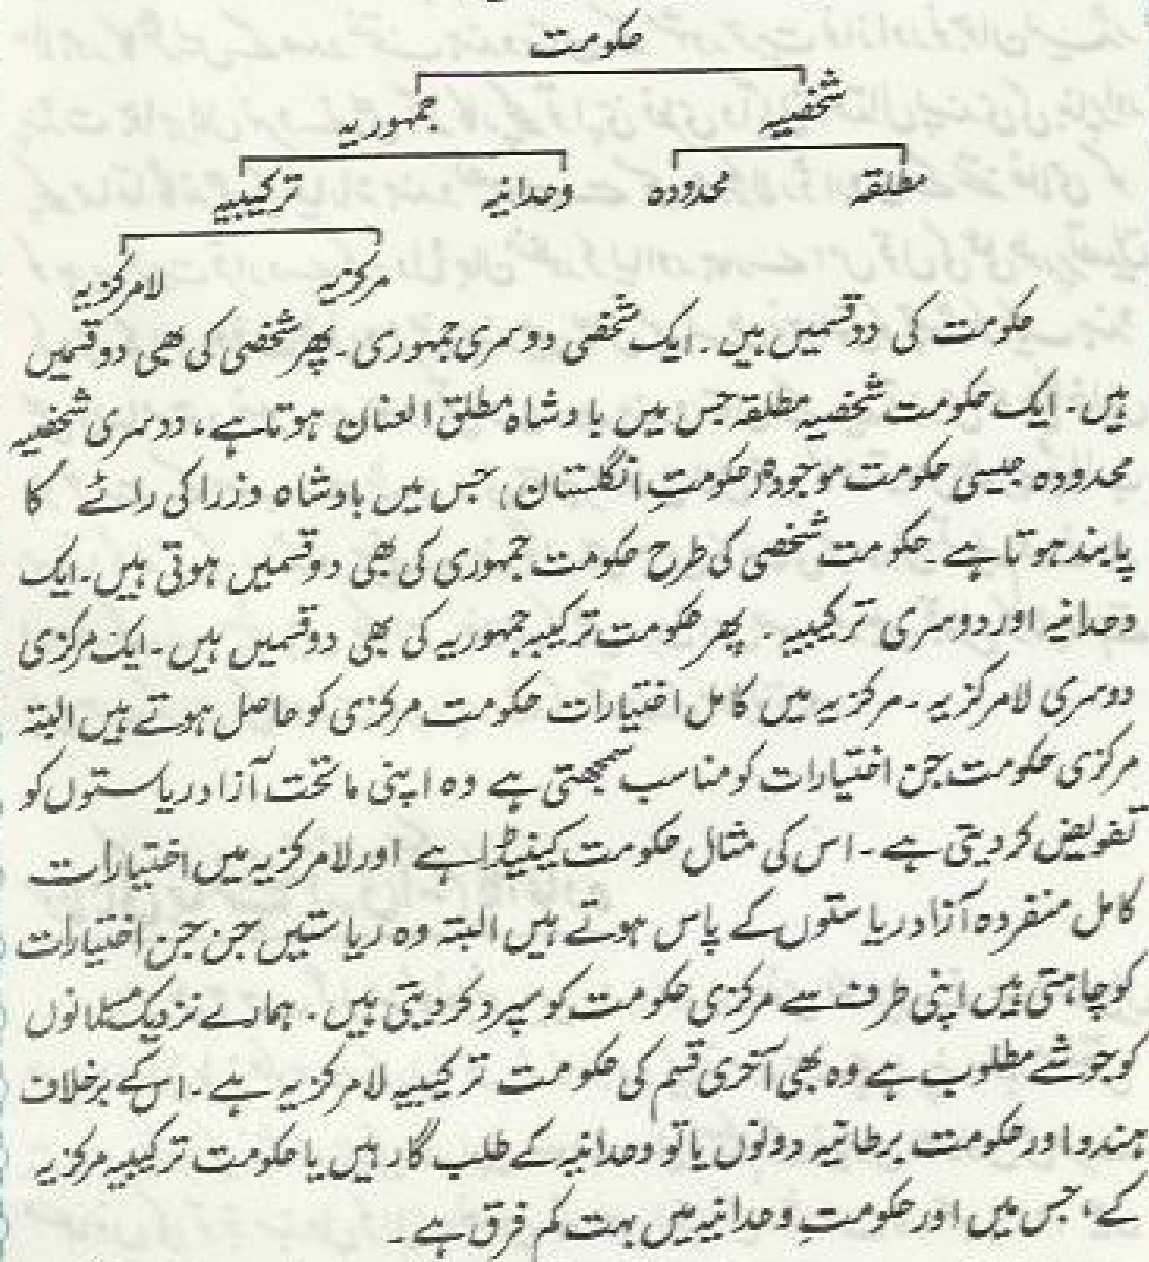 حکومت
شخصیہ جمہوریہ
مطلقہ محدودہ وحدانیہ ترکیبیہ
مرکزیہ لامرکزیہ
حکومت کی دو قسمیں ہیں۔ ایک شخصی دوسری جمہوری۔ پھر شخصی کی بھی دو قسمیں
ہیں۔ ایک حکومت شخصیہ مطلقہ جس میں بادشاہ مطلق العنان ہوتا ہے، دوسری شخصیہ
محدودہ جیسی حکومت موجودہ (حکومتِ انگلستان) جس میں بادشاہ وزرا کی رائے کا
پابند ہوتا ہے۔ حکومت شخصی کی طرح حکومت جمہوری کی بھی دو قسمیں ہوتی ہیں۔ ایک
وحدانیہ اور دوسری ترکیبیہ۔ پھر حکومت ترکیبیہ جمہوریہ کی بھی دو قسمیں ہیں۔ ایک مرکزی
دوسری لامرکزیہ۔ مرکزیہ میں کامل اختیارات حکومت مرکزی کو حاصل ہوتے ہیں البتہ
مرکزی حکومت جن اختیارات کو مناسب سمجھتی ہے وہ اپنی ماتحت آزاد ریاستوں کو
تفویض کر دیتی ہے۔ اس کی مثال حکومت کینیڈا ہے اور لامرکزیہ میں اختیارات
کامل منفردہ آزاد ریاستوں کے پاس ہوتے ہیں البتہ وہ ریاستیں جن جن اختیارات
کو چاہتی ہیں اپنی طرف سے مرکزی حکومت کو سپرد کر دیتی ہیں۔ ہمارے نزدیک مسلمانوں
کو جو شے مطلوب ہے وہ بھی آخری قسم کی حکومت ترکیبیہ لامرکزیہ ہے۔ اس کے برخلاف
ہندو اور حکومت برطانیہ دونوں یا تو وحدانیہ کے طلب گار ہیں یا حکومت ترکیبیہ مرکزیہ
کے، جس میں اور حکومتِ وحدانیہ میں بہت کم فرق ہے۔